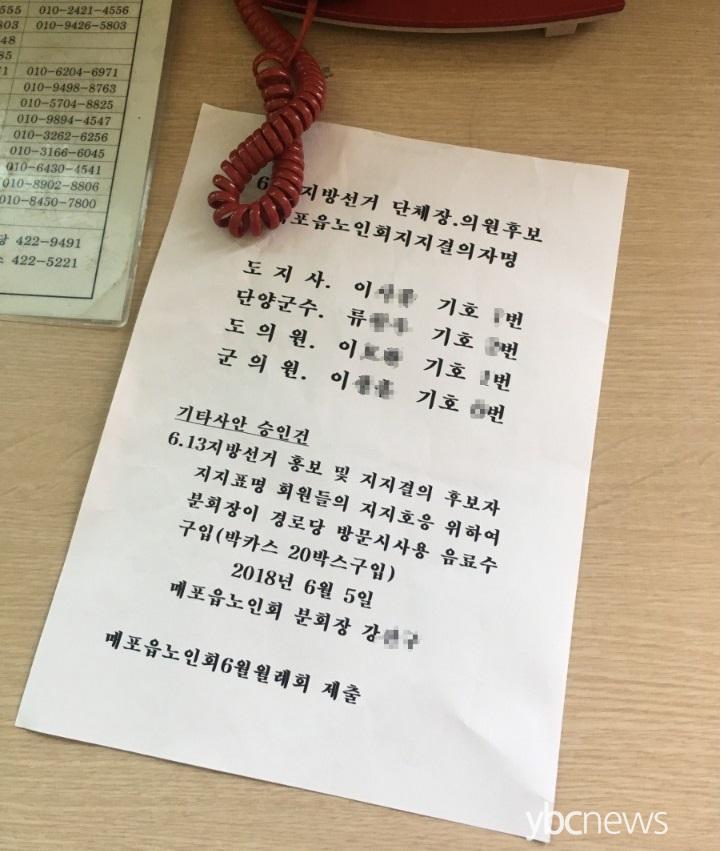 555 010-2421-4556
803 010-9426-5803
48
85
71 010-6204-6971
010-9498-8763
010-5704-8825
010-9894-4547
010-3262-6256
010-3166-6045
010-6430-4541
010-8902-8806
010-8450-7800
당 422-9491
422-5221
지방선거 단체장.의원후보
매포읍노인회지지결의자명
도 지 사. 이 기호 번
단양군수. 류 기호 번
도 의 원. 이 기호 번
군 의 원. 이 기호 번
기타사안 승인건
6.13지방선거 홍보 및 지지결의 후보자
지지표명 회원들의 지지호응 위하여
분회장이 경로당 방문시사용 음료수
구입(박카스 20박스구입)
2018년 6월 5일
매포읍노인회 분회장 강
매포읍노인회6월월례회 제출
ybcnews